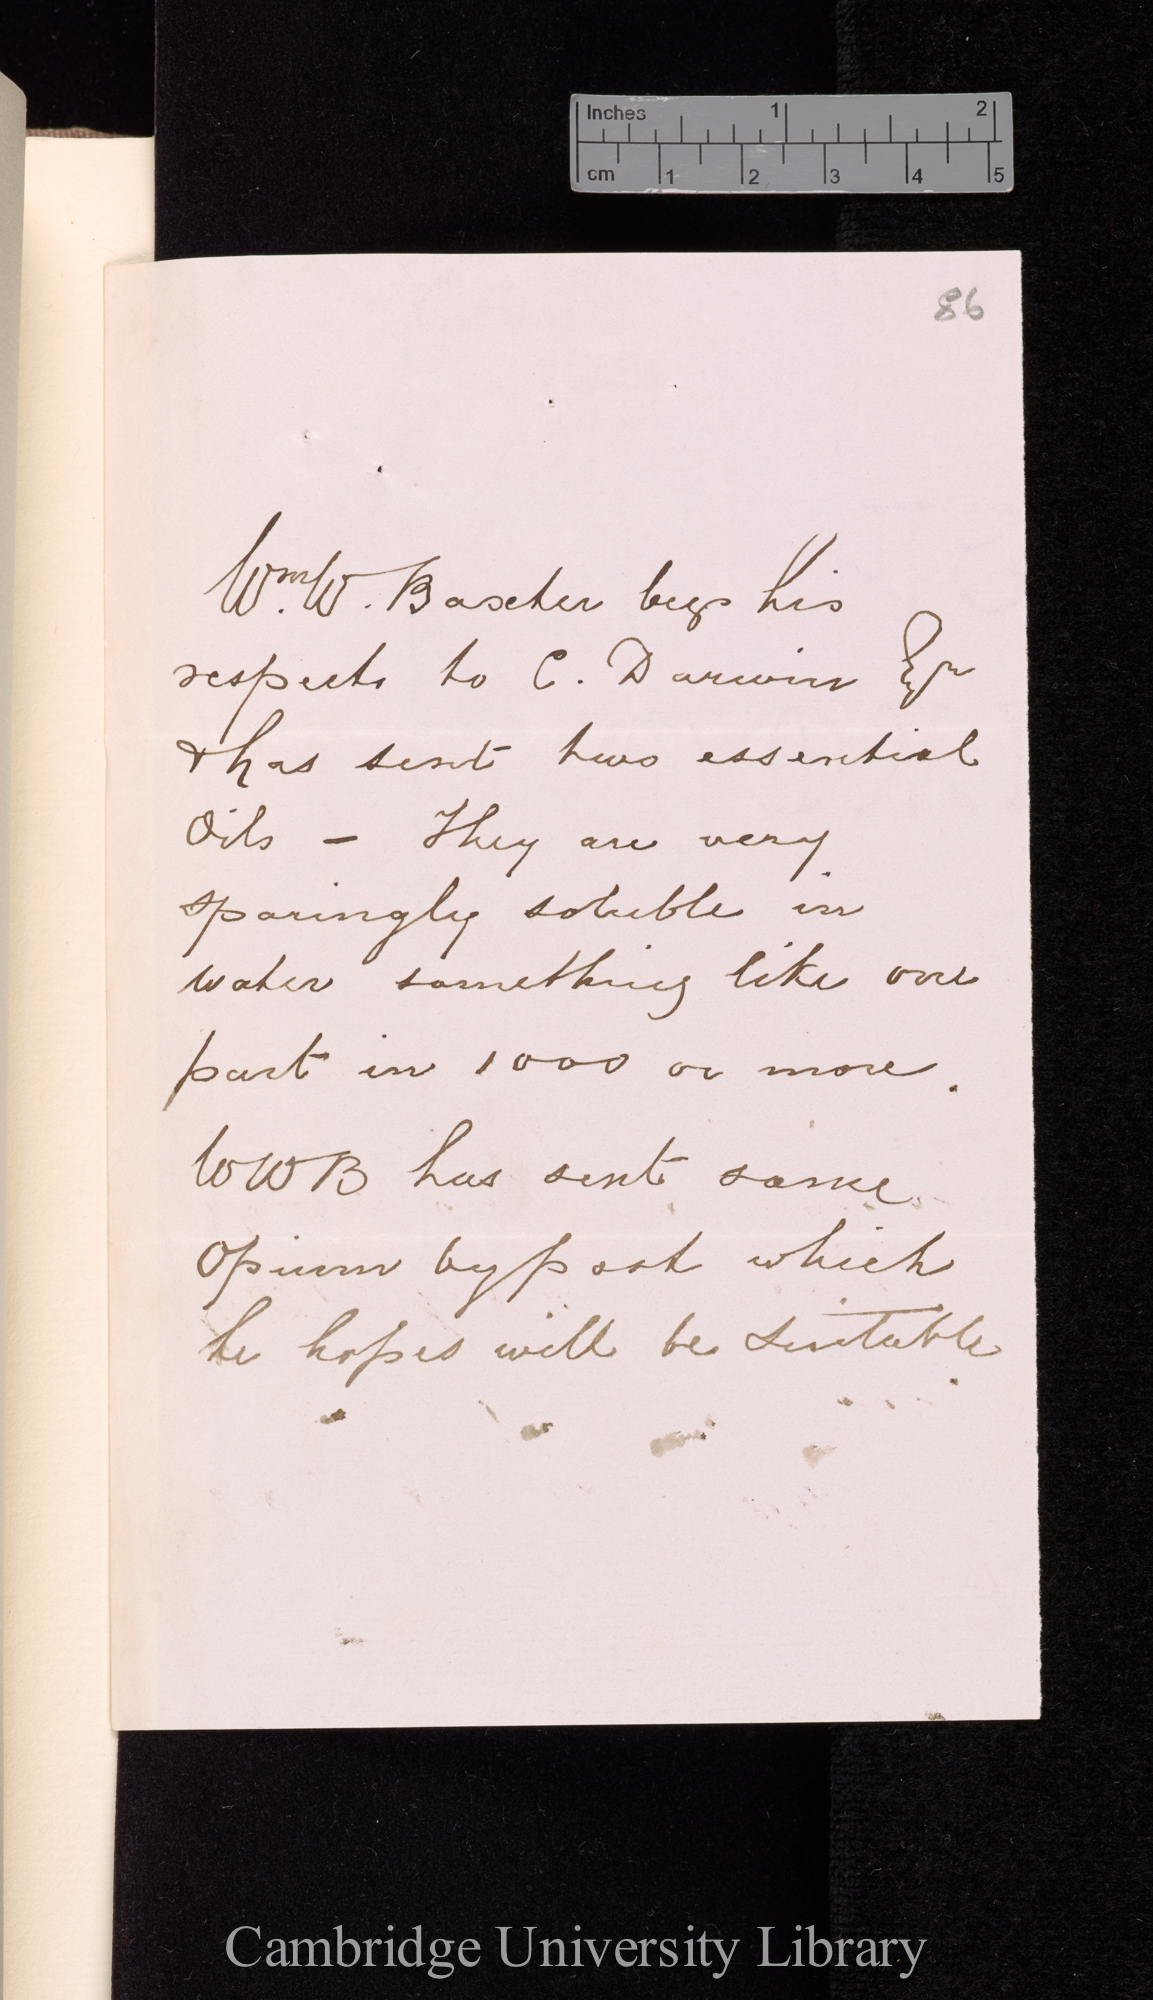 Inches 1 2
cm 1 2 3 4 5
86
Wm. W. Baxter begs his
respects to C. Darwin Esqr
& has sent two essential
Oils – They are very
sparingly soluble in
water something like one
part in 1000 or more.
WWB has sent some
Opium by post which
he hopes will be suitable
Cambridge University Library